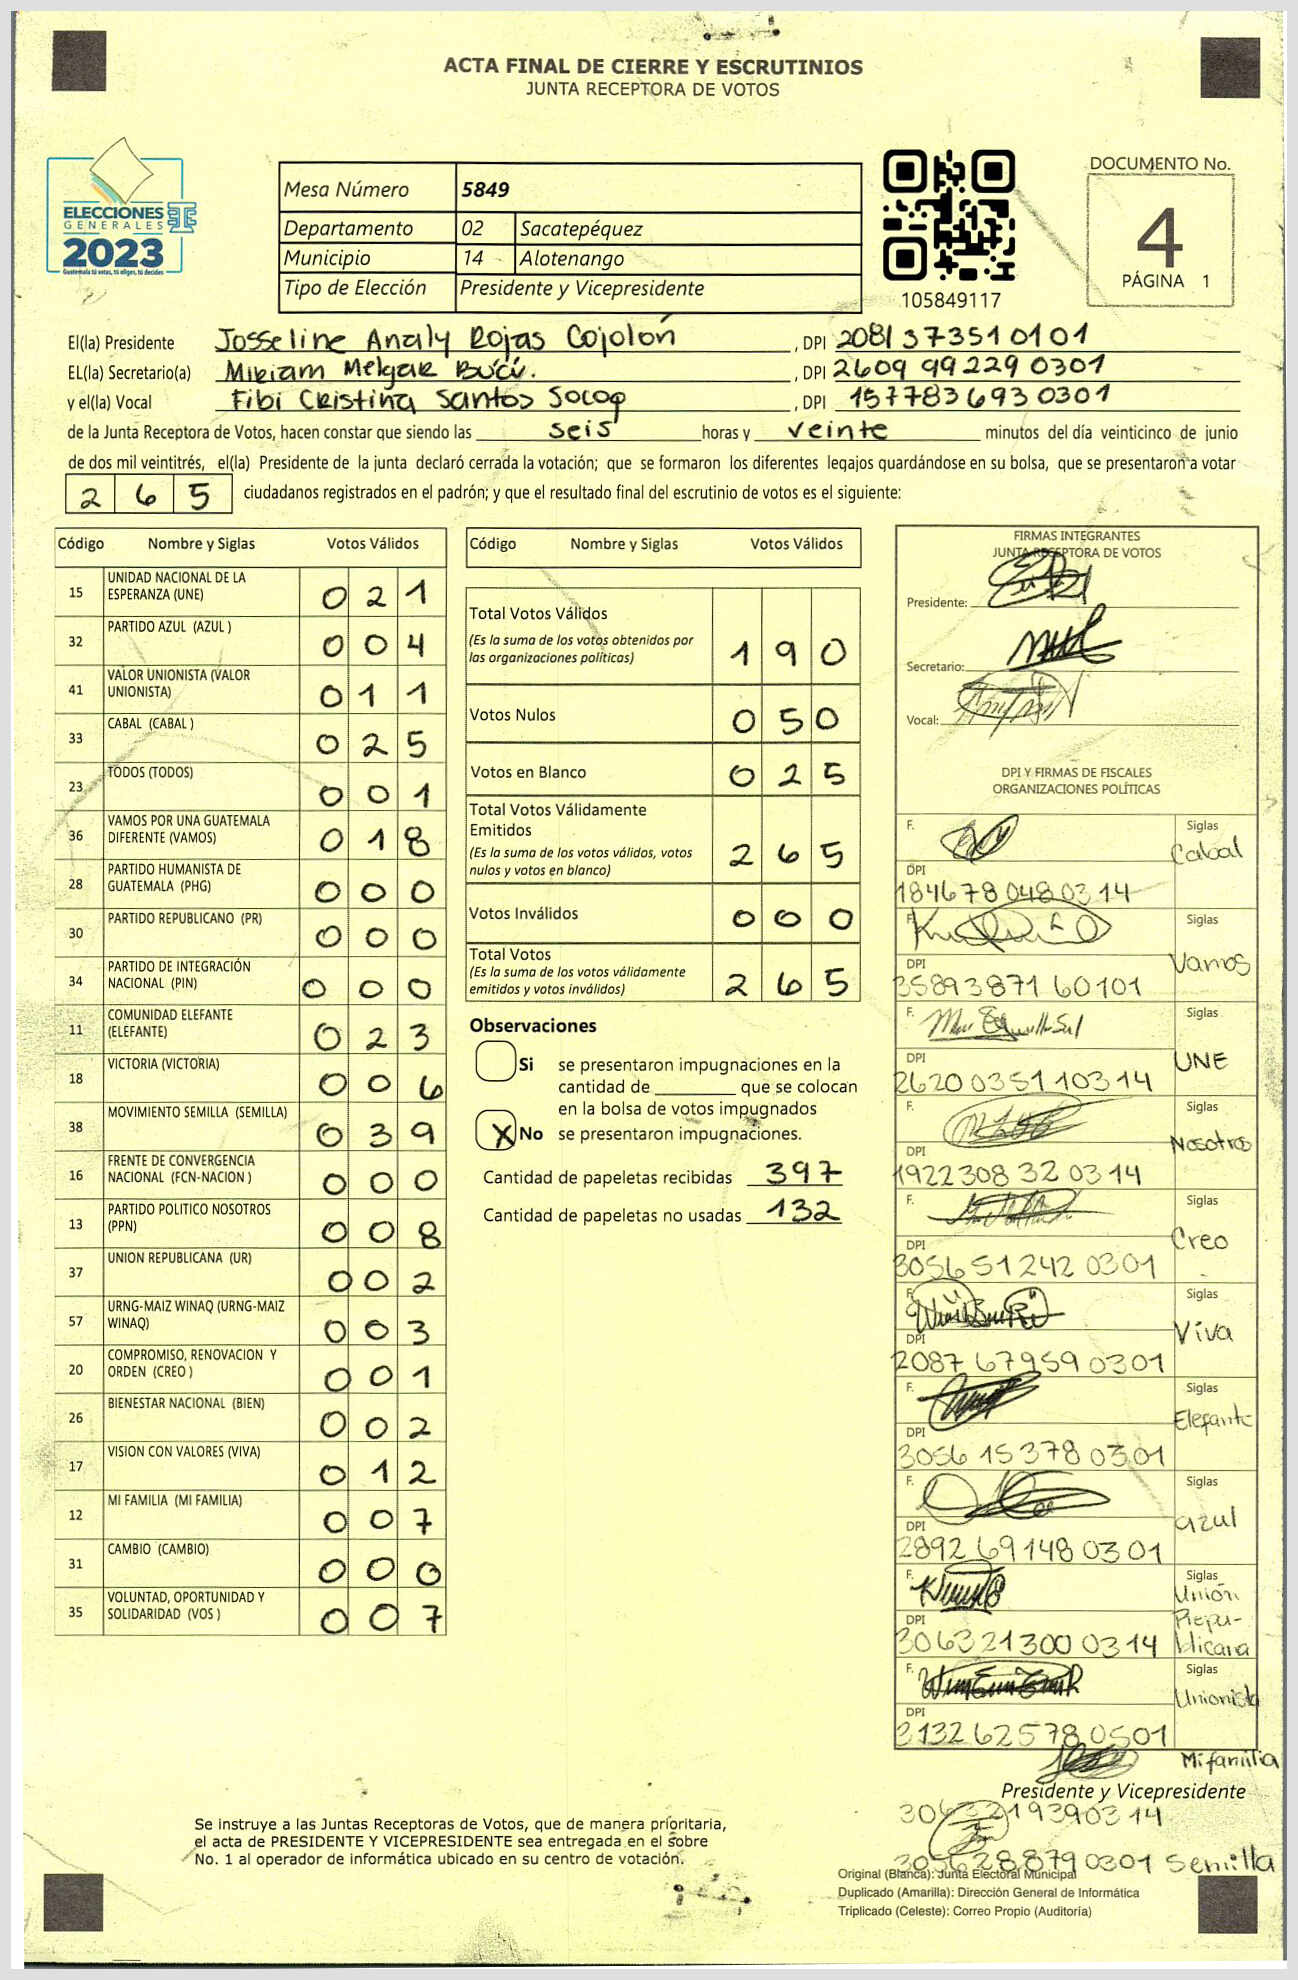 ACTA FINAL DE CIERRE Y ESCRUTINIOS
JUNTA RECEPTORA DE VOTOS
ELECCIONES
GENERALES
2023
Guatemala tú votas, tú eliges, tú decides
Mesa Número 5849
Departamento 02 Sacatepéquez
Municipio 14 Alotenango
Tipo de Elección Presidente y Vicepresidente
105849117
DOCUMENTO No.
4
PÁGINA 1
El(la) Presidente Josseline Analy Rojas Cojolón, DPI 2081373510101
EL(la) Secretario(a) Miriam Melgar Búcú., DPI 2609 99229 0301
y el(la) Vocal Fibi Cristina Santos Socop, DPI 157783693 0301
de la Junta Receptora de Votos, hacen constar que siendo las seis horas y veinte minutos del día veinticinco de junio
de dos mil veintitrés, el(la) Presidente de la junta declaró cerrada la votación; que se formaron los diferentes legajos guardándose en su bolsa, que se presentaron a votar
2 6 5 ciudadanos registrados en el padrón; y que el resultado final del escrutinio de votos es el siguiente:
Código Nombre y Siglas Votos Válidos
15 UNIDAD NACIONAL DE LA ESPERANZA (UNE) 0 2 1
32 PARTIDO AZUL (AZUL ) 0 0 4
41 VALOR UNIONISTA (VALOR UNIONISTA) 0 1 1
33 CABAL (CABAL ) 0 2 5
23 TODOS (TODOS) 0 0 1
36 VAMOS POR UNA GUATEMALA DIFERENTE (VAMOS) 0 1 8
28 PARTIDO HUMANISTA DE GUATEMALA (PHG) 0 0 0
30 PARTIDO REPUBLICANO (PR) 0 0 0
34 PARTIDO DE INTEGRACIÓN NACIONAL (PIN) 0 0 0
11 COMUNIDAD ELEFANTE (ELEFANTE) 0 2 3
18 VICTORIA (VICTORIA) 0 0 6
38 MOVIMIENTO SEMILLA (SEMILLA) 0 3 9
16 FRENTE DE CONVERGENCIA NACIONAL (FCN-NACION ) 0 0 0
13 PARTIDO POLITICO NOSOTROS (PPN) 0 0 8
37 UNION REPUBLICANA (UR) 0 0 2
57 URNG-MAIZ WINAQ (URNG-MAIZ WINAQ) 0 0 3
20 COMPROMISO, RENOVACION Y ORDEN (CREO ) 0 0 1
26 BIENESTAR NACIONAL (BIEN) 0 0 2
17 VISION CON VALORES (VIVA) 0 1 2
12 MI FAMILIA (MI FAMILIA) 0 0 7
31 CAMBIO (CAMBIO) 0 0 0
35 VOLUNTAD, OPORTUNIDAD Y SOLIDARIDAD (VOS ) 0 0 7
Código Nombre y Siglas Votos Válidos
Total Votos Válidos
(Es la suma de los votos obtenidos por
las organizaciones políticas) 1 9 0
Votos Nulos 0 5 0
Votos en Blanco 0 2 5
Total Votos Válidamente
Emitidos
(Es la suma de los votos válidos, votos
nulos y votos en blanco) 2 6 5
Votos Inválidos 0 0 0
Total Votos
(Es la suma de los votos válidamente
emitidos y votos inválidos) 2 6 5
Observaciones
Si se presentaron impugnaciones en la
cantidad de ________ que se colocan
en la bolsa de votos impugnados
X No se presentaron impugnaciones.
Cantidad de papeletas recibidas 397
Cantidad de papeletas no usadas 132
FIRMAS INTEGRANTES
JUNTA RECEPTORA DE VOTOS
Presidente:
Secretario:
Vocal:
DPI Y FIRMAS DE FISCALES
ORGANIZACIONES POLÍTICAS
F. Siglas Cabal
DPI 184678 048 03 14
F. Siglas Vamos
DPI 35893871 60101
F. Siglas UNE
DPI 26200351 10314
F. Siglas Nosotros
DPI 1922308 32 03 14
F. Siglas Creo
DPI 305651242 0301
F. Siglas Viva
DPI 2087 67959 0301
F. Siglas Elefante
DPI 3056 15378 0301
F. Siglas azul
DPI 2892 69148 03 01
F. Siglas Unión Republicana
DPI 306321300 0314
F. Siglas Unionista
DPI 3132 62578 0501
Mi familia
Presidente y Vicepresidente
3063219390314
305628879 0301 Semilla
Se instruye a las Juntas Receptoras de Votos, que de manera prioritaria,
el acta de PRESIDENTE Y VICEPRESIDENTE sea entregada en el sobre
No. 1 al operador de informática ubicado en su centro de votación.
Original (Blanca): Junta Electoral Municipal
Duplicado (Amarilla): Dirección General de Informática
Triplicado (Celeste): Correo Propio (Auditoría)